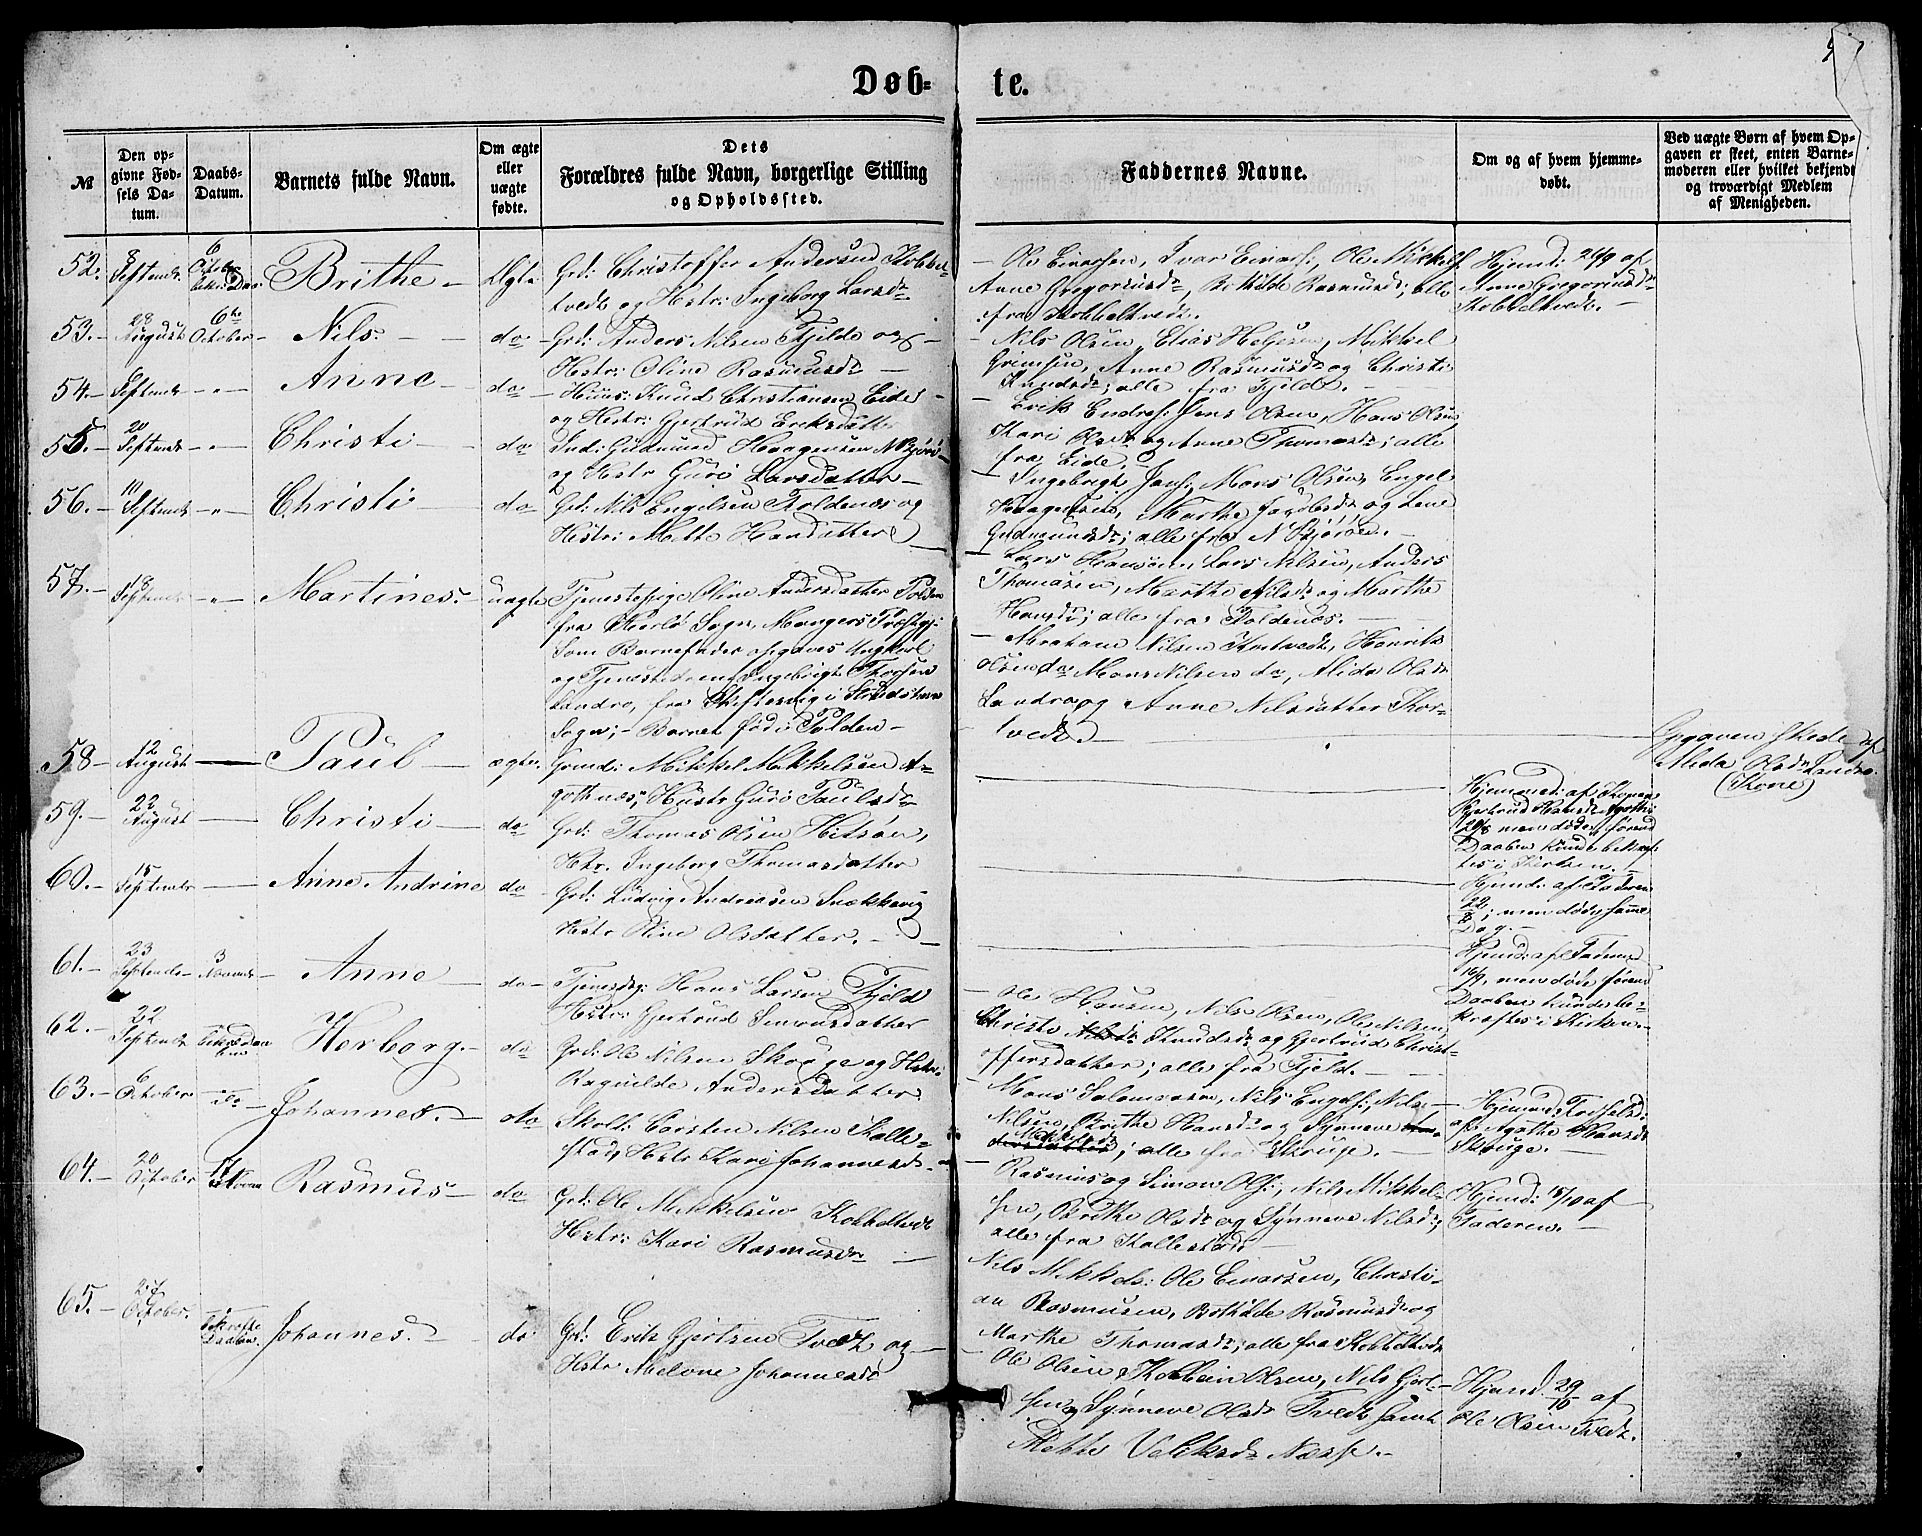 Døb-
te.
№
Den op-
givne Fød-
sels Da-
tum.
Daabs-
Datum.
Barnets fulde Navn.
Om ægte
eller
uægte
fødte.
Dets
Forældres fulde Navn, borgerlige Stilling
og Opholdssted.
Faddernes Navne.
Om og af hvem hjemme-
døbt.
Ved uægte Børn af hvem Op-
gaven er skeet, enten Barne-
moderen eller hvilket bekjendt
og troværdigt Medlem
af Menigheden.
52.
8
Septembr
6
October
Brithe
Ægte
Grd: Christoffer Andersen
og Hstr: Ingeborg Larsdr
Ole Einarsen, Ivar Einars:, Ole Mikkels:
Anne Gregoriusdr, Bothilde Rasmusdr; alle
fra
Hjemd: 26/9 af
Anne Gregoriusdr
53.
28
August
6te
October
Nils.
do
Grd: Anders Nilsen Fjelde og
Hstr: Oline Rasmusdr
Nils Olsen, Elias Helgesen, Mikkel
Grimsen, Anne Rasmusdr og Christi
Knudsdr; alle fra Fjelde.
54.
6
Septembr
Anne
do
Huus: Knud Christiansen Eide
og Hstr: Gjertrud Eriksdatter
Erik Endres: Jens Olsen, Hans Olsen
Kari Olsdr og Anne Thomasdr; alle
fra Eide.
55.
20
Septembr
Christi
do
Ind: Gudmund Haagensen N Bjorø
og Hstr Guro Larsdatter
Ingebrigt Jans:, Mons Olsen, Engel
Haagensen, Marthe Jacobsdr og Lene
Gudmundsdr; alle fra N Bjorøen.
56.
10
Septembr
Christi
do
Grd: Nils Engelsen Foldenæs og
Hstr: Mette Hansdatter
Lars Hansen, Lars Nilsen, Anders
Thomasen, Marthe Nilsdr og Marthe
Hansdr; alle fra Foldenæs.
57.
18
Septembr
Martines.
uægte
Tjenestepige Oline Andersdatter Tolden
fra Herlø Sogn, Mangers Præstegj:
Som Barnefader opgaves Ungkarl
og Tjenestedreng Ingebrigt
Landro, fra
Sogn; Barnet født i Tolden
Abraham Nilsen Kortvedt, Henrik
Olsen do Mons Nilsen do, Alida Olsdr
Landro og Anne Nilsdatter Kor-
tvedt.
Opgaven skede af
Alida Olsdr Landro.
(Kone)
58
12
August
Paul
ægte.
Grund: Mikkel Mikkelsen A-
gothnæs, Hustr Guro Paulsdr
Hjemmed: af Konen
Gjertrud Hansdr
men døde førend
Daaben kunde bekræf-
tes i Kirken.
59.
22
August
Christi
do
Grd: Thomas Olsen
Hstr. Ingeborg Thomasdatter
Hjemd: af Faderen
22/8; men døde samme
Dag.
60.
15
Septembr
Anne Andrine
do
Grd: Ludvig Andreasen Snekkevig
Hstr Oline Olsdatter.
Hjemd: af Faderen
16/9, men døde førend
Daaben kunde be-
kræftes i Kirken.
61.
23
Septembr
3
Novembr
Anne
do
Tjenesdrg: Hans Larsen Fjeld
Hstr: Gjertrud Simonsdatter
Ole Hansen, Nils Olsen, Ole Nilsen,
Christi Nilsdr Knudsdr og Gjertrud Christ-
offersdatter; alle fra Fjeld.
62.
22
Septembr
Herborg.
do
Grd: Ole Nilsen Skoge og Hstr:
Ragnilde Andersdatter
Mons Salomonsen, Nils Engels:, Nils
Nilsen, Brithe Hansdr og Synneve An-
dersdatter Mikkelsdr; alle fra Skoge.
Hjemmd: Fødselsd:
af Agathe Hansdr
Skoge.
63.
6
October
do
Johannes.
do
Skoll: Carsten Nilsen Kalle-
stad, Hstr Kari Johannesdr
Rasmus og Simon Ols:, Nils Mikkel-
sen, Brithe Olsdr og Synneve Nilsdr;
alle fra Kallestad
Hjemd: 15/10 af
Faderen.
64.
20
October
Rasmus
do
Grd: Ole Mikkelsen
Hstr: Kari Rasmusdr
Nils Mikkels: Ole Einarsen, Christi-
an Rasmusen, Bothilde Rasmusdr og
Marthe Thomasdr; alle fra
65.
27
October.
Bekræfte
Daaben.
Johannes.
do
Grd: Erik Gjertsen Tvedt og
Hstr Abelone Johannesdr
Ole Olsen, Kolbein Olsen, Nils Gjert-
sen, Synneve Olsdr Tvedt samt
Hjemd. 29/10 af
Ole Olsen Tvedt.